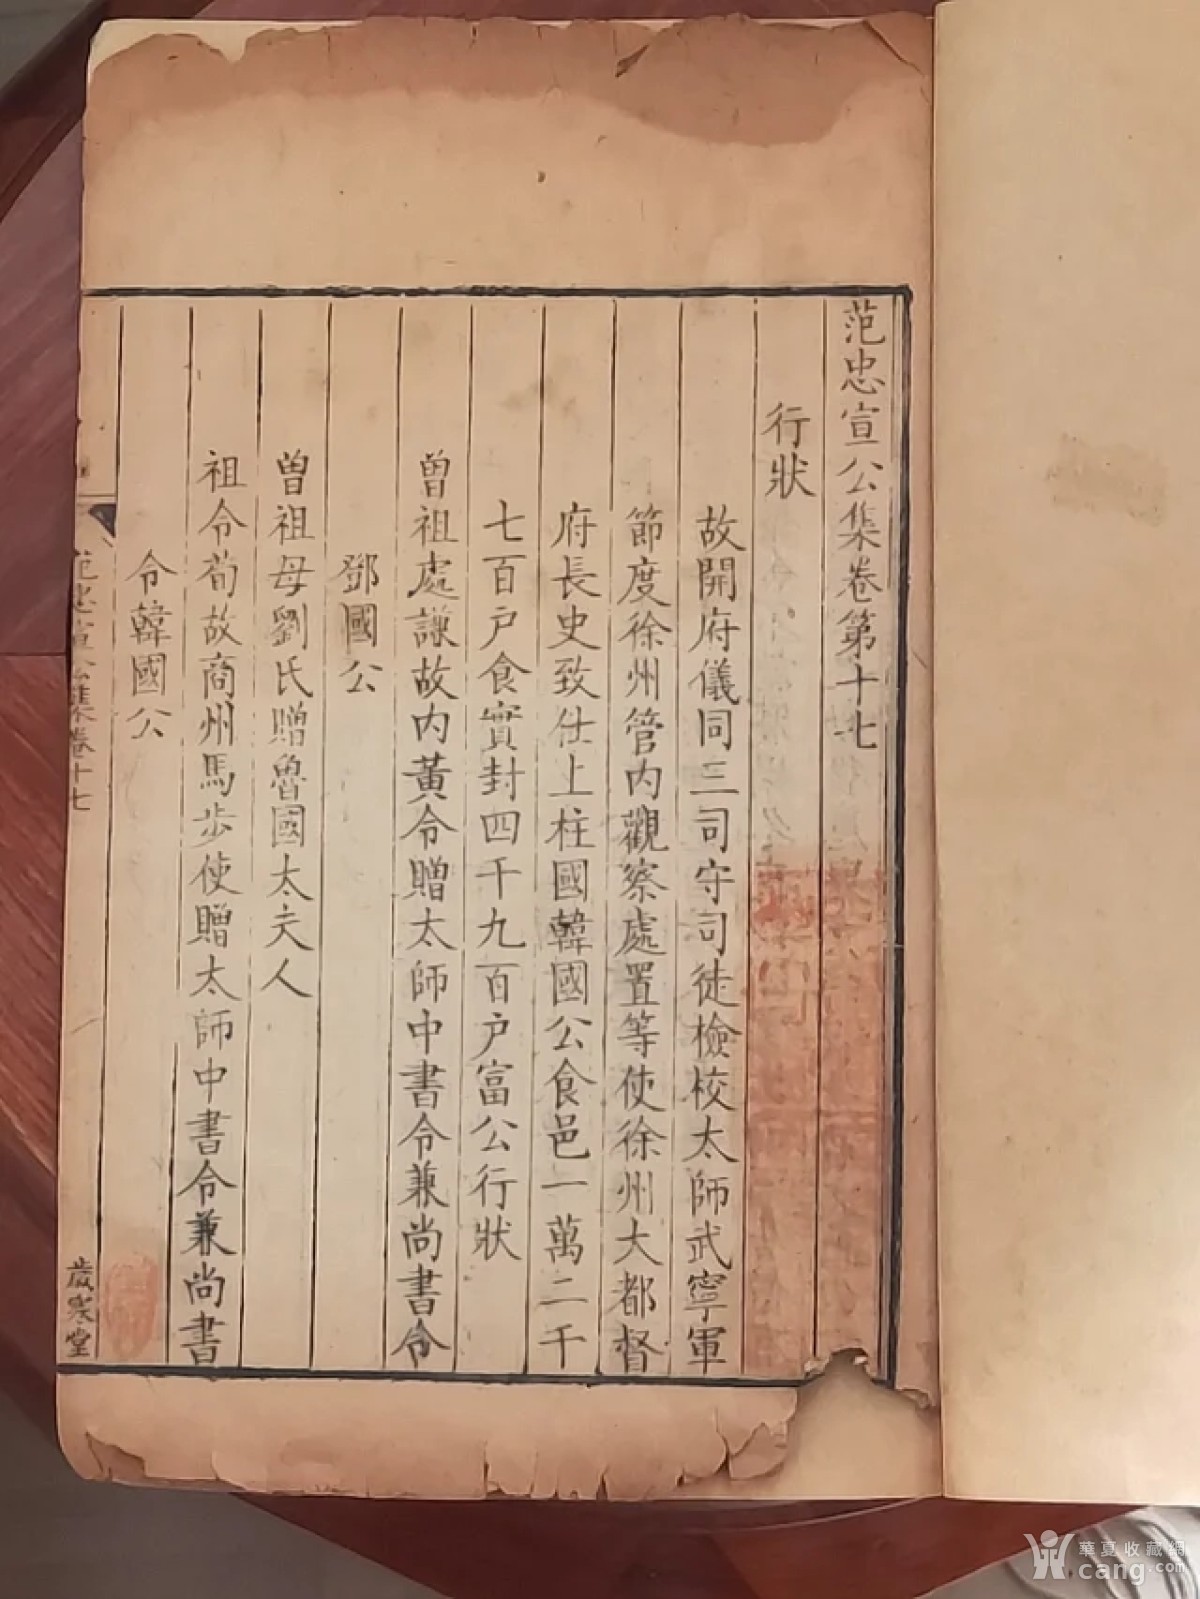 范忠宣公集卷第十七
行狀
故開府儀同三司守司徒檢校太師武寧軍
節度徐州管內觀察處置等使徐州大都督
府長史致仕上柱國韓國公食邑一萬二千
七百户食實封四千九百户富公行狀
曾祖處謙故內黃令贈太師中書令兼尚書令
鄧國公
曾祖母劉氏贈魯國太夫人
祖令荀故商州馬步使贈太師中書令兼尚書
令韓國公
范忠宣公集卷十七
歲寒堂
華夏收藏網
cang.com